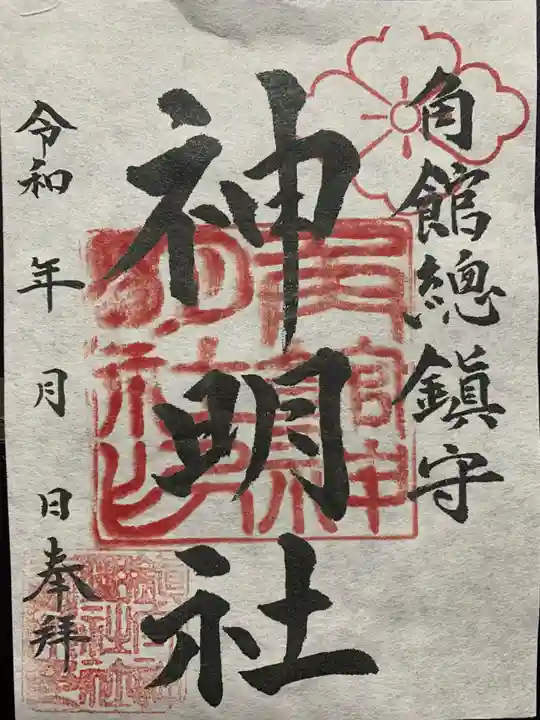 角館總鎮守
神明社
令和 年 月 日 奉拜